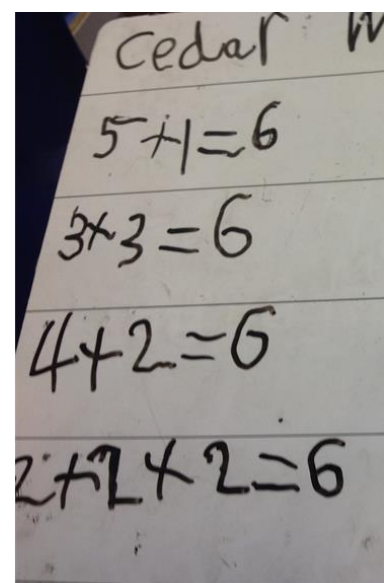 Cedar
5+1=6
3+3=6
4+2=6
2+2+2=6